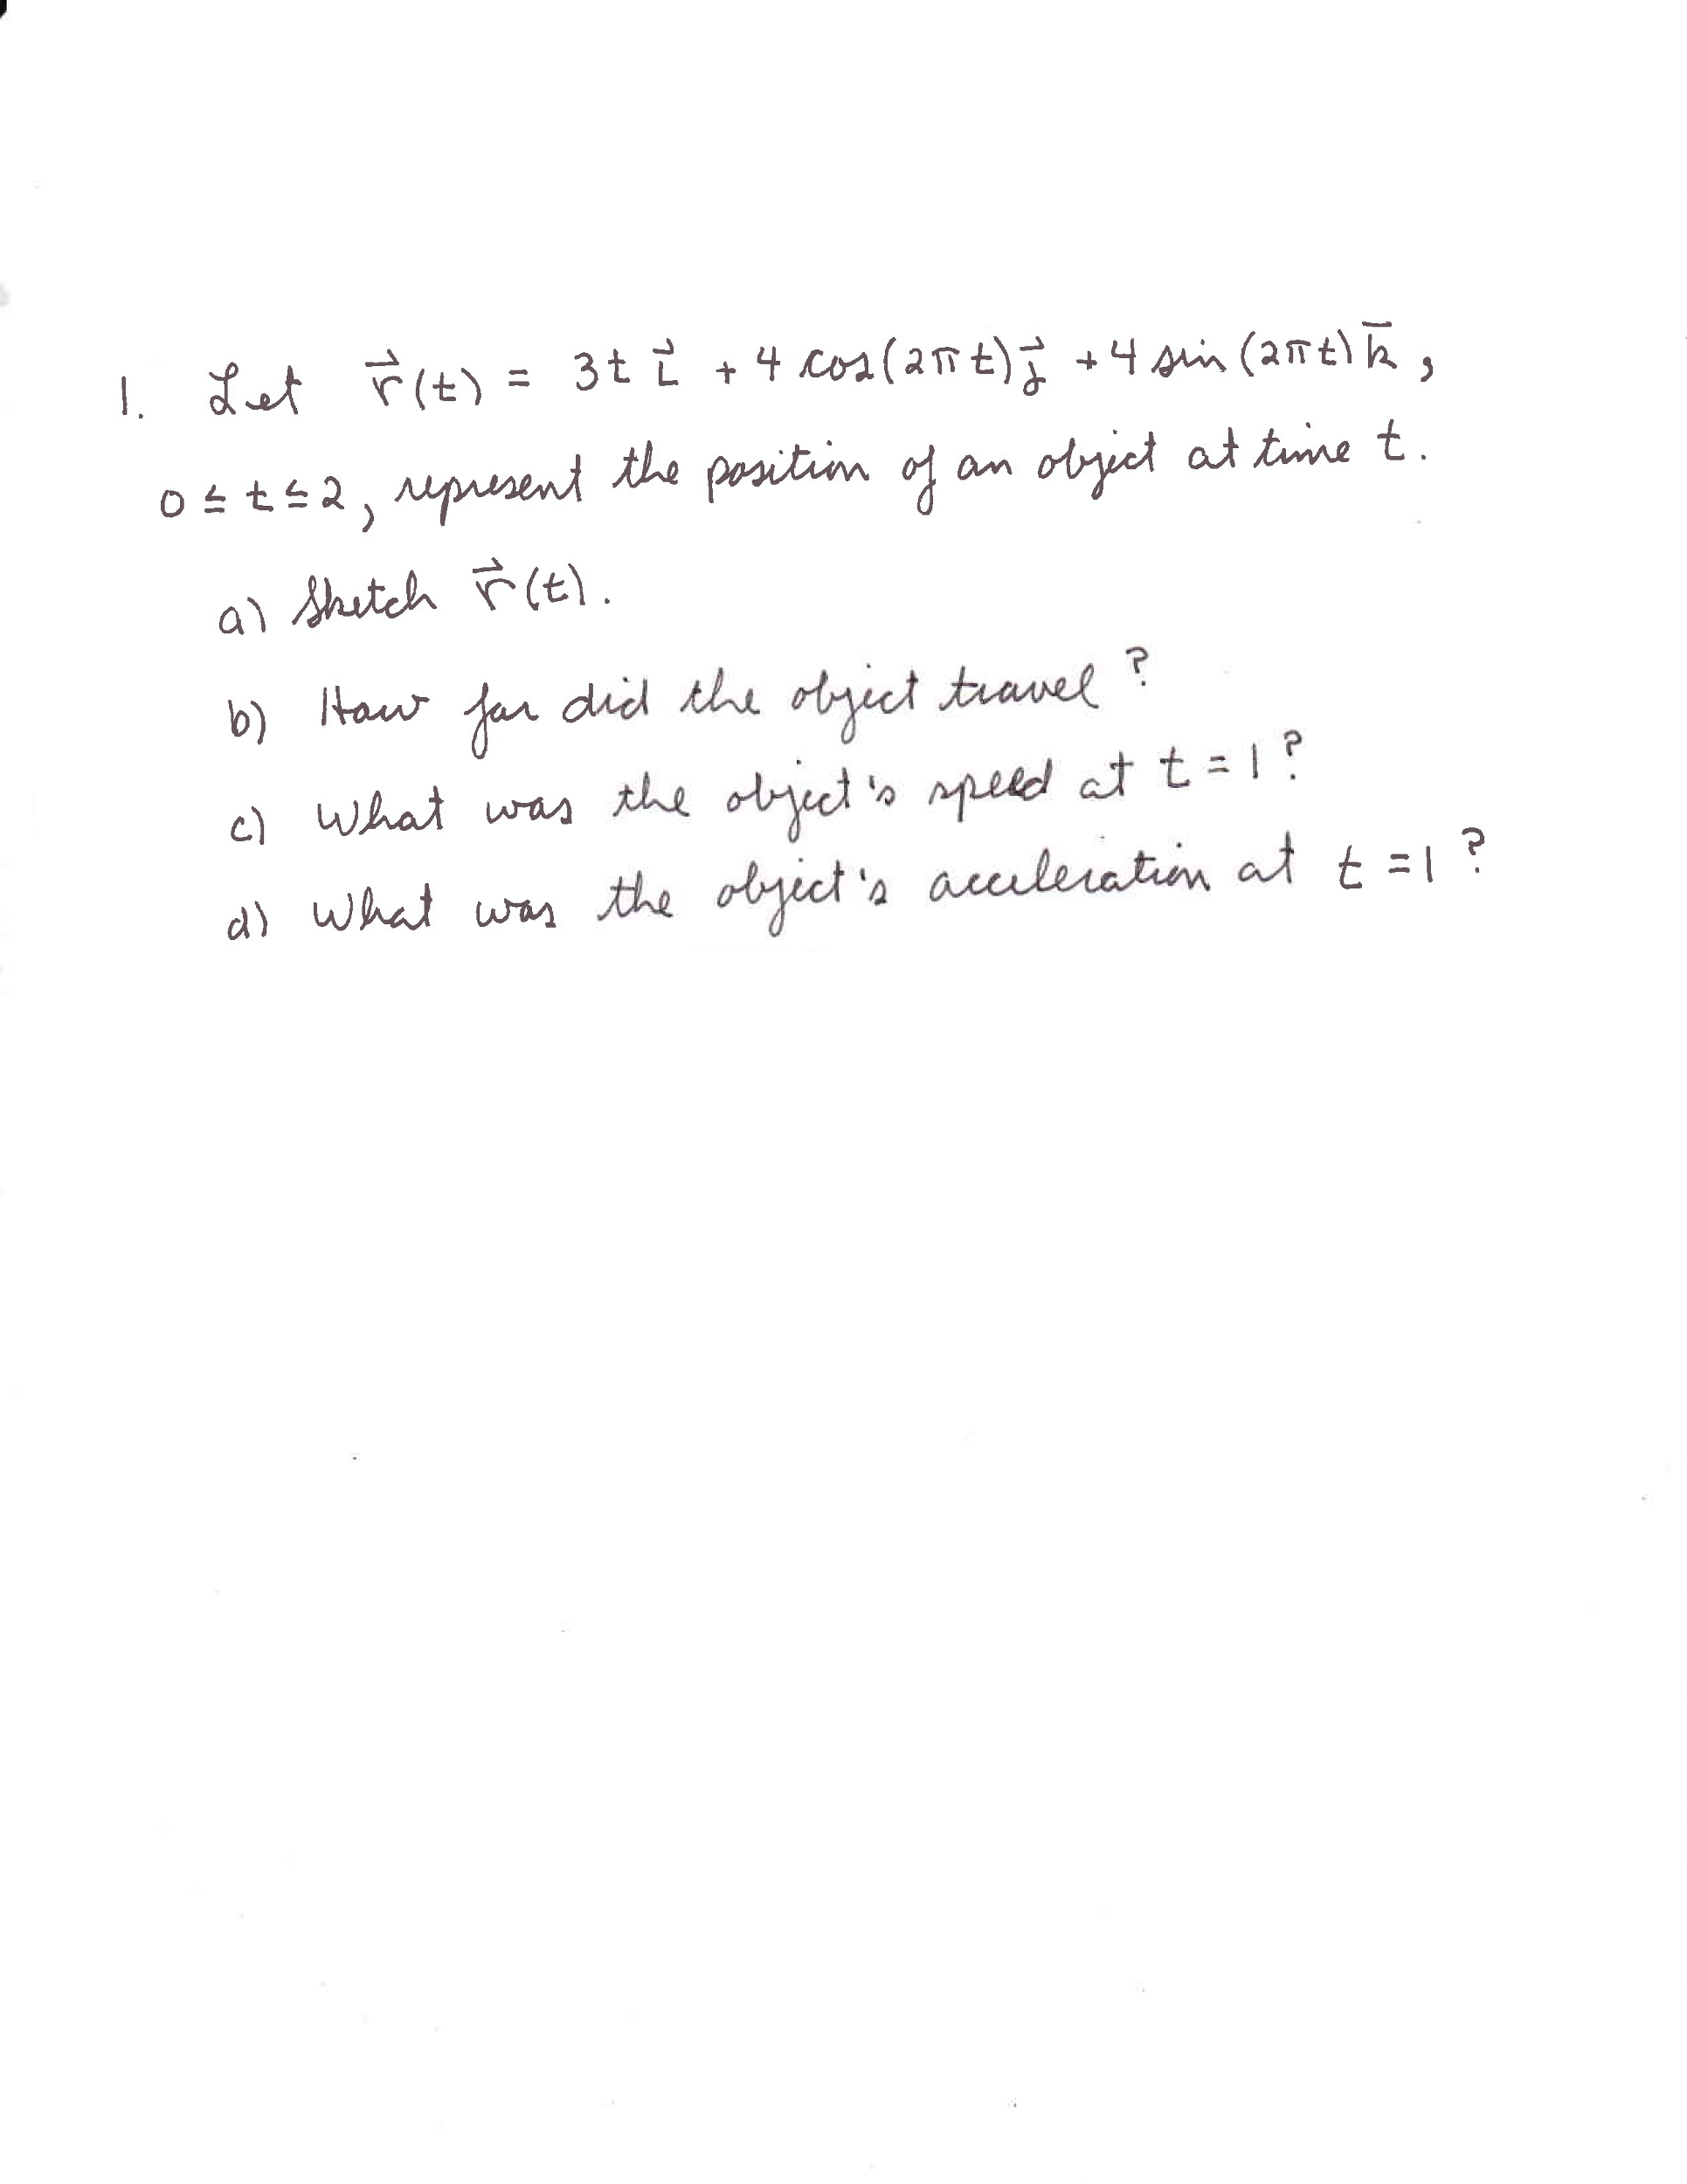 1. Let r⃗(t) = 3t i⃗ + 4 cos(2πt) j⃗ + 4 sin(2πt) k̅,
0 ≤ t ≤ 2, represent the position of an object at time t.
a) Sketch r⃗(t).
b) How far did the object travel?
c) What was the object's speed at t = 1?
d) What was the object's acceleration at t = 1?